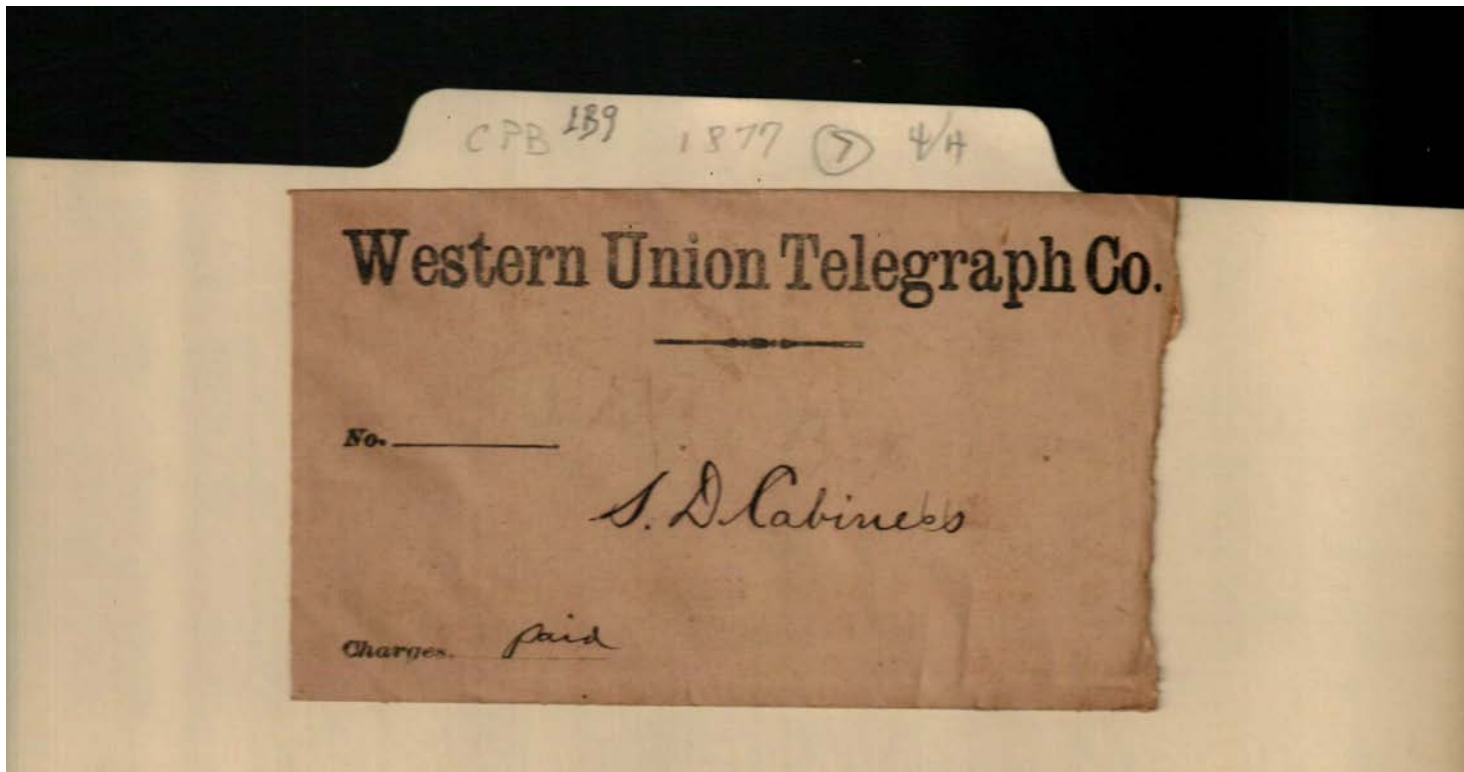 CPB 1B9 1877 7 4/H
Western Union Telegraph Co.
No.
S. D. Cabiness
Charges. paid